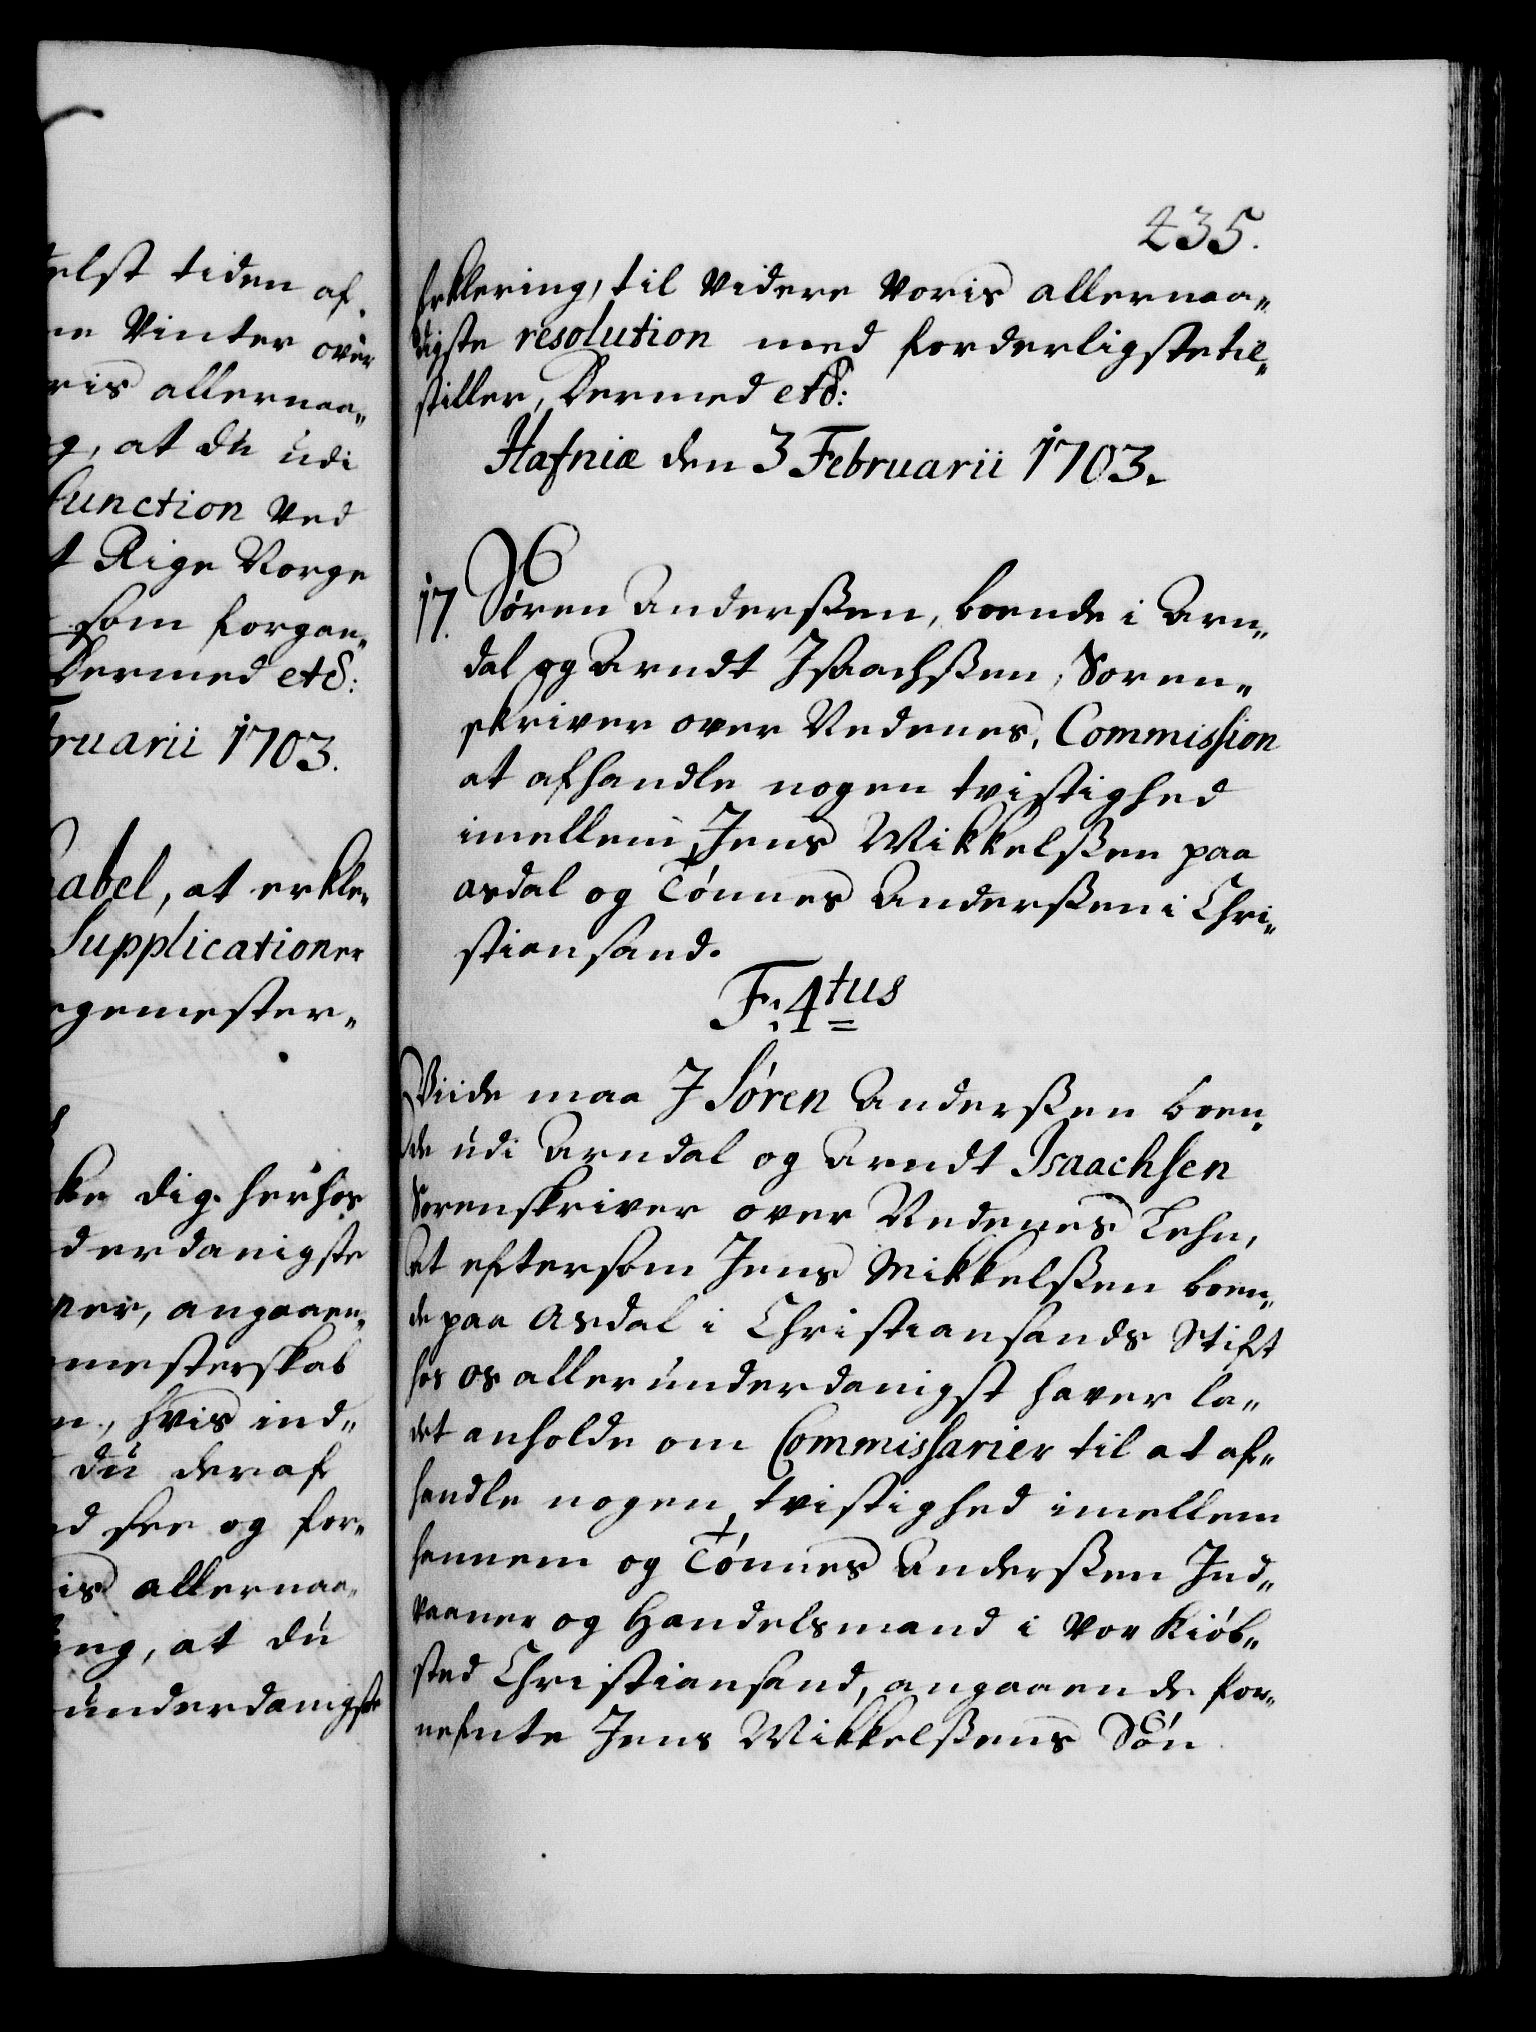 elst tiden af¬
ne Vinter over
ris allernaa¬
g, at du udi
function ved
t Rige Norge
som forgaa¬
Dermed etc:
bruarii 1703.
Gabel, at erkle¬
Supplicationer
gemester¬
ke dig herhos
derdanigste
ner, angaaen¬
mesterskab
n, hvis ind¬
du deraf
d see og for¬
is allernaa¬
ing, at du
underdanigste
235.
Erklering, til videre Voris allernaa¬
digste resolution med forderligste til¬
stiller, Dermed etc:
Hafniæ den 3 Februarii 1703.
17. Sören Anderssen, boende i Arn¬
dal og Arndt Isaachssen, Soren¬
skriver over Nedenes, Commission
at afhandle nogen tvistighed
imellem Jens Mikkelssen paa
Asdal og Tönnes Anderssen i Chri¬
stiansand.
F: 4tus
Viide maa I Sören Anderssen boen¬
de udi Arndal og Arndt Isaachsen
Sorenskriver over Nedenes Lehn,
At eftersom Jens Mikkelssen boen¬
de paa Asdal i Christiansands Stift
hos os allerunderdanigst haver la¬
det anholde om Commissarier til at af¬
handle nogen tvistighed imellem
hannem og Tönnes Anderssen Ind¬
vaaner og Handelsmand i vor Kiöb¬
sted Christiansand, angaaende for¬
nefnte Jens Mikkelssens Sön